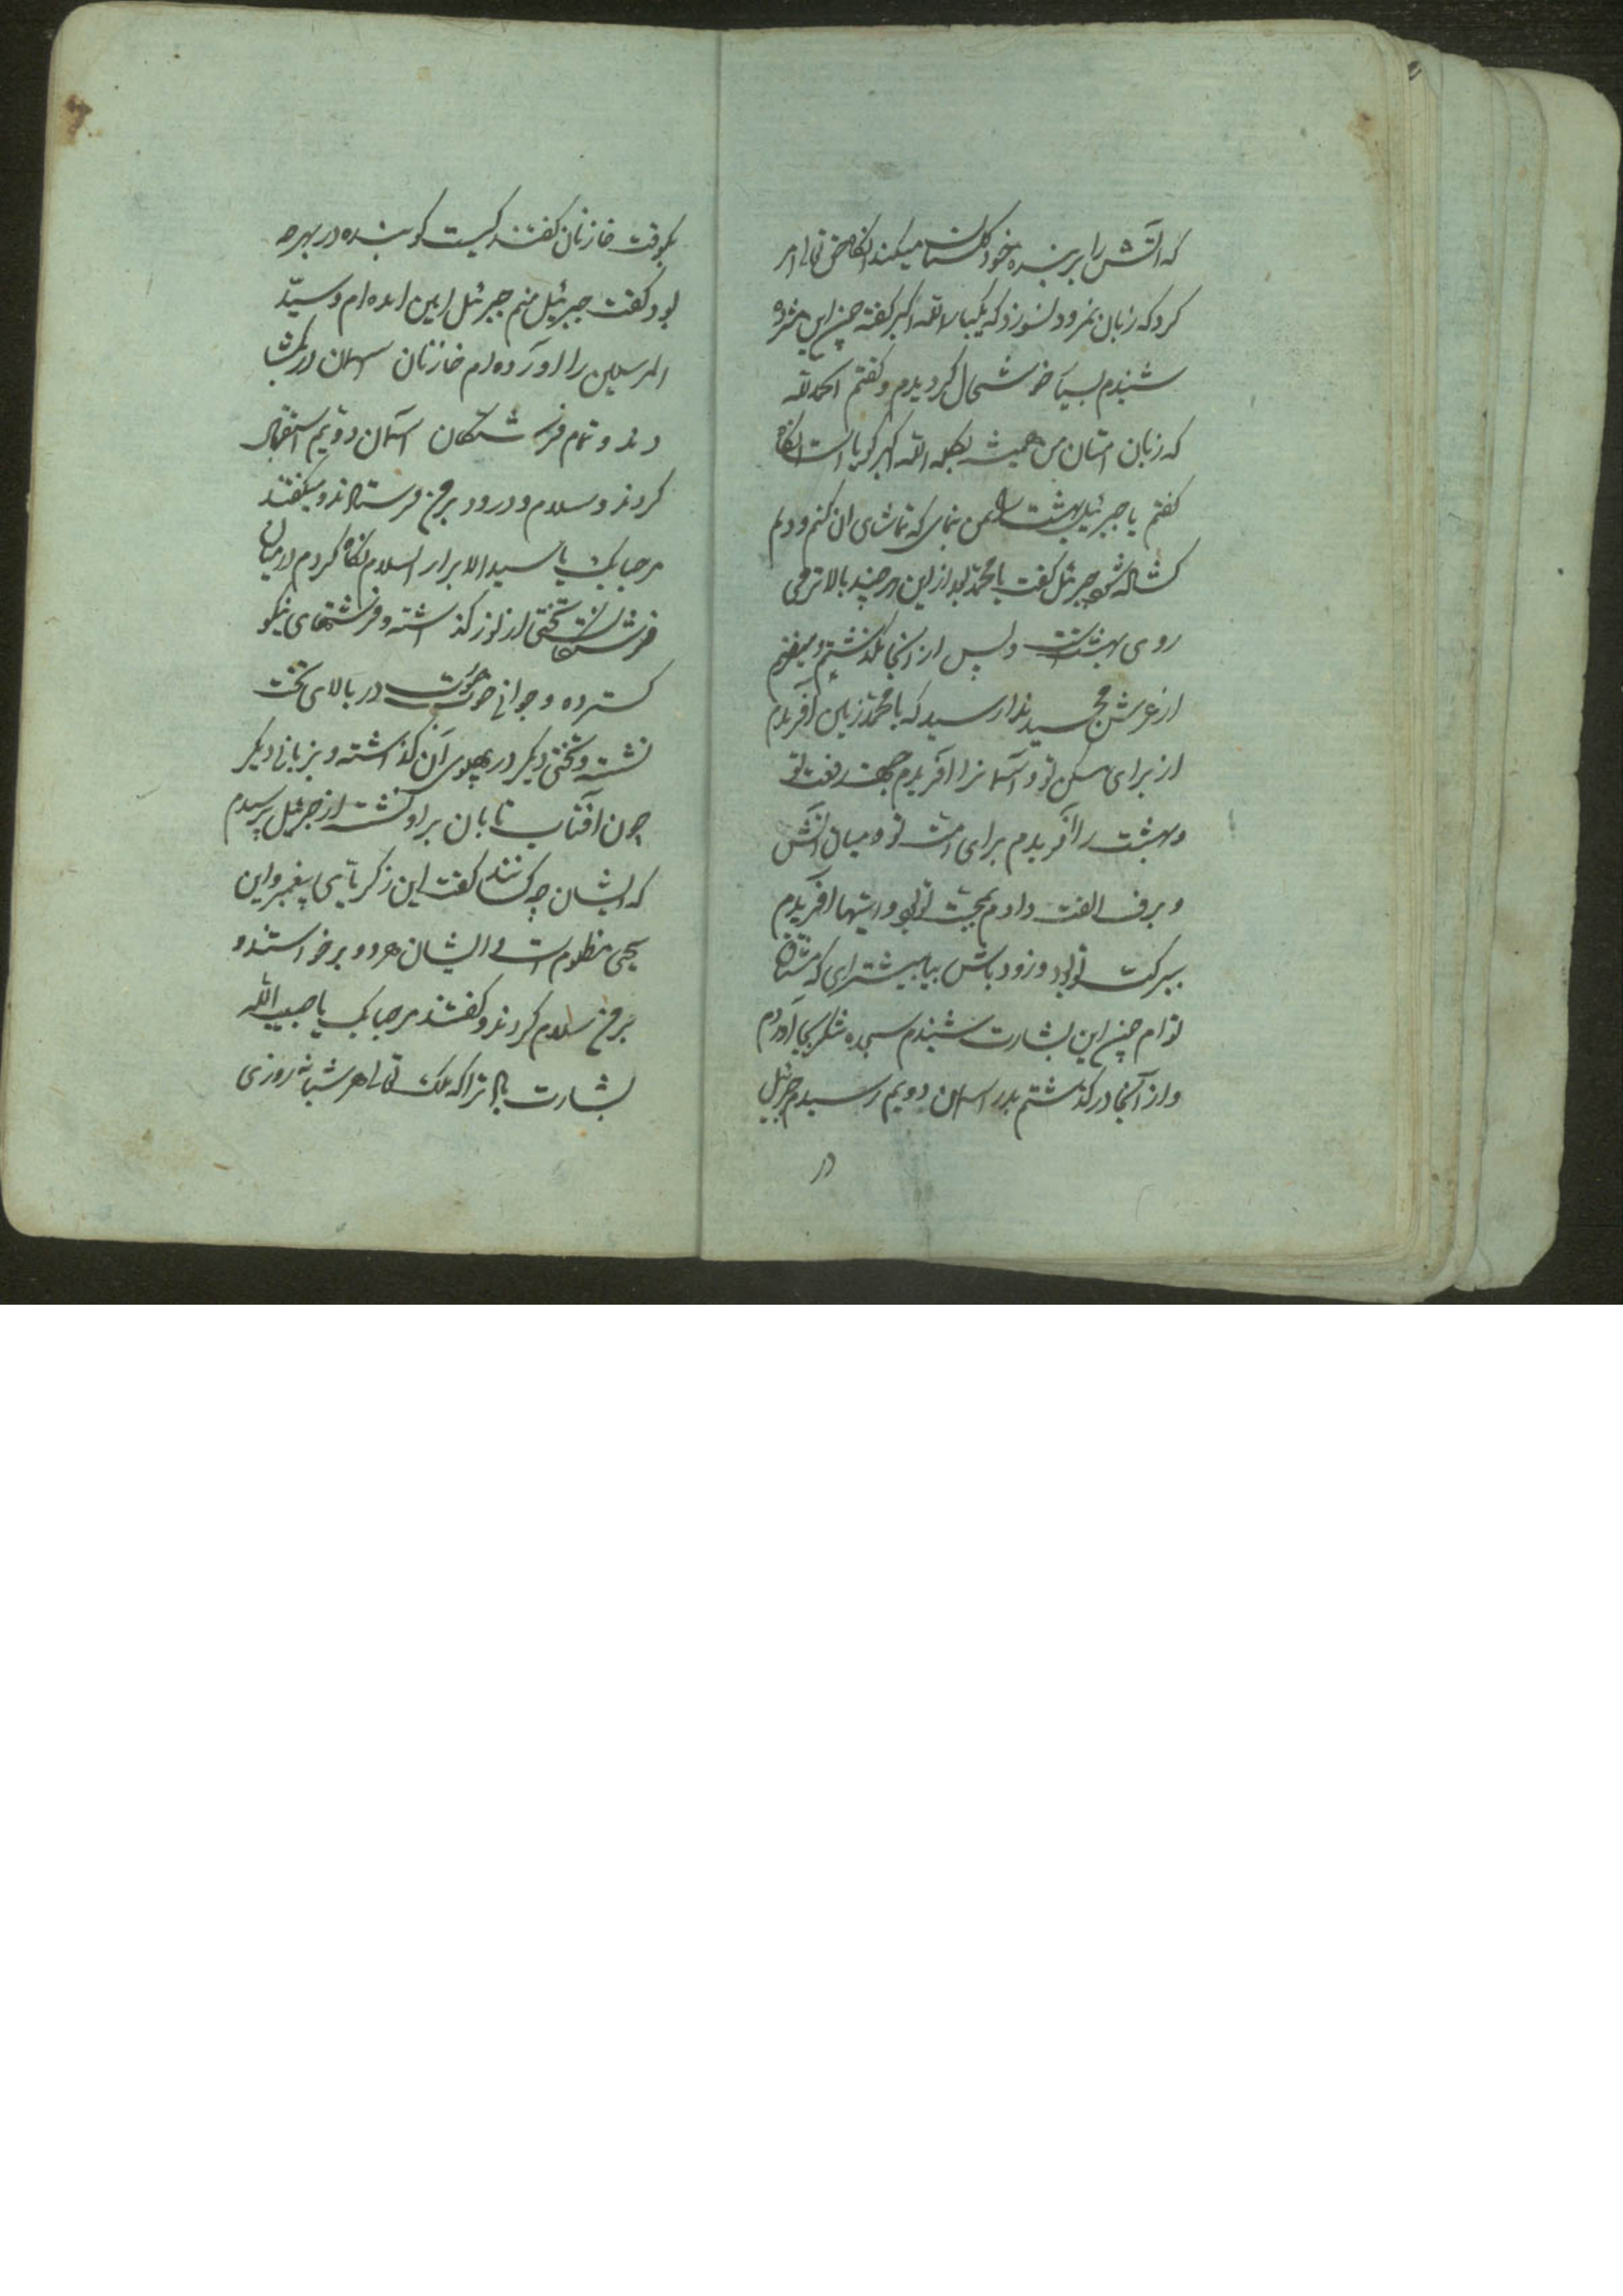 که آتش را بر بنده خود کلستان میکند انکاه حق تعالی امر
کرد که زبان نمرود نسوزد که یکبار الله اکبر کفته چون این مژده
شنیدم بسیار خوشحال کردیدم و کفتم الحمد لله
که زبان امتان من همیشه بکلمه الله اکبر کویا است انکاه
کفتم یا جبرئیل بهشت را بمن بنمای که تماشای ان کنم و دلم
کشاده شود جبرئیل کفت یا محمد بعد از این هر چند بالاتر می
روی بهشت است و پس از آنجا بگذشتم و میفتم
از عرش مجید ندا رسید که یا محمد زمین آفریدم
از برای مسکن تو و آسمانرا آفریدم جهت رفعت تو
و بهشت را آفریدم برای امت تو و میان آتش
و برف الفت دادم بمحبت تو بود و اینها آفریدم
ببرکت تو بود و زود باش بیا بیشتر ای که مشتاق
توام چون این بشارت شنیدم سجده شکر بجا آوردم
و از آنجا در کذشتم بدر اسمان دویم رسیدم جبرئیل
در
بکوفت خازنان کفتند کیست کوبنده در بهر چه
بود کفت جبرئیل منم جبرئیل امین امده ام و سید
المرسلین را اورده ام خازنان اسمان در بکشا
دند و تمام فرشتکان آسمان دویم استقبال
کردند و سلام و درود بر من فرستادند و میکفتند
مرحبا بک یا سید الابرار السلام نکاه کردم در میان
فرشتکان تختی از نور کذاشته و فرشهای نیکو
کسترده و جوانی خوب صورت در بالای تخت
نشسته و تختی دیکر در پهلوی آن کذاشته و بزبانی دیکر
چون آفتاب تابان بر او نشسته از جبرئیل پرسیدم
که ایشان چه کسانند کفت این زکریا پیغمبر و این
یحیی مظلوم است ایشان هر دو برخواستند و
بر من سلام کردند و کفتند مرحبا بک یا حبیب الله
بشارت باد ترا که ملک تعالی هر شبانه روزی